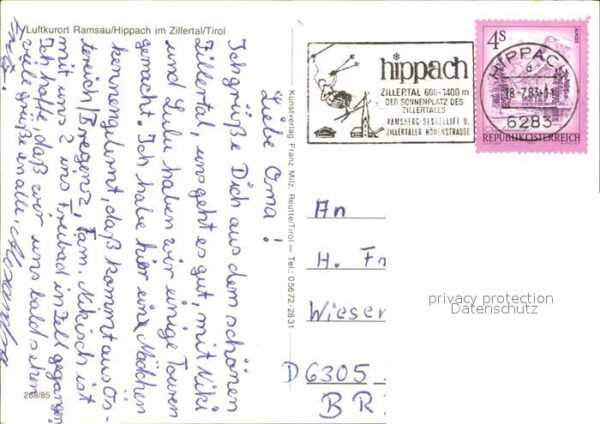 Luftkurort Ramsau/Hippach im Zillertal/Tirol
Liebe Oma!
Ich grüße Dich aus dem schönen
Zillertal, uns geht es gut, mit Niki
und Lulu haben wir einige Touren
gemacht. Ich habe hier eine Mädchen
kennengelernt, daß kommt aus Ös-
terreich/Bregenz, Fam. Nikisch ist
mit uns 2 ins Freibad in Zell gegangen
Ich hoffe, daß wir uns bald sehen
viele grüße an alle, Alexandra
268/85
Kunstverlag Franz Milz, Reutte/Tirol — Tel.: 0 56 72 - 28 31
hippach
ZILLERTAL 600-1400 m
DER SONNENPLATZ DES
ZILLERTALES
RAMSBERG-SESSELLIFT U.
ZILLERTALER HÖHENSTRASSE
4S
REPUBLIK ÖSTERREICH
HIPPACH
18.-7.83-11
6283
An
H. Fr
Wiesen
D6305
BR
privacy protection
Datenschutz